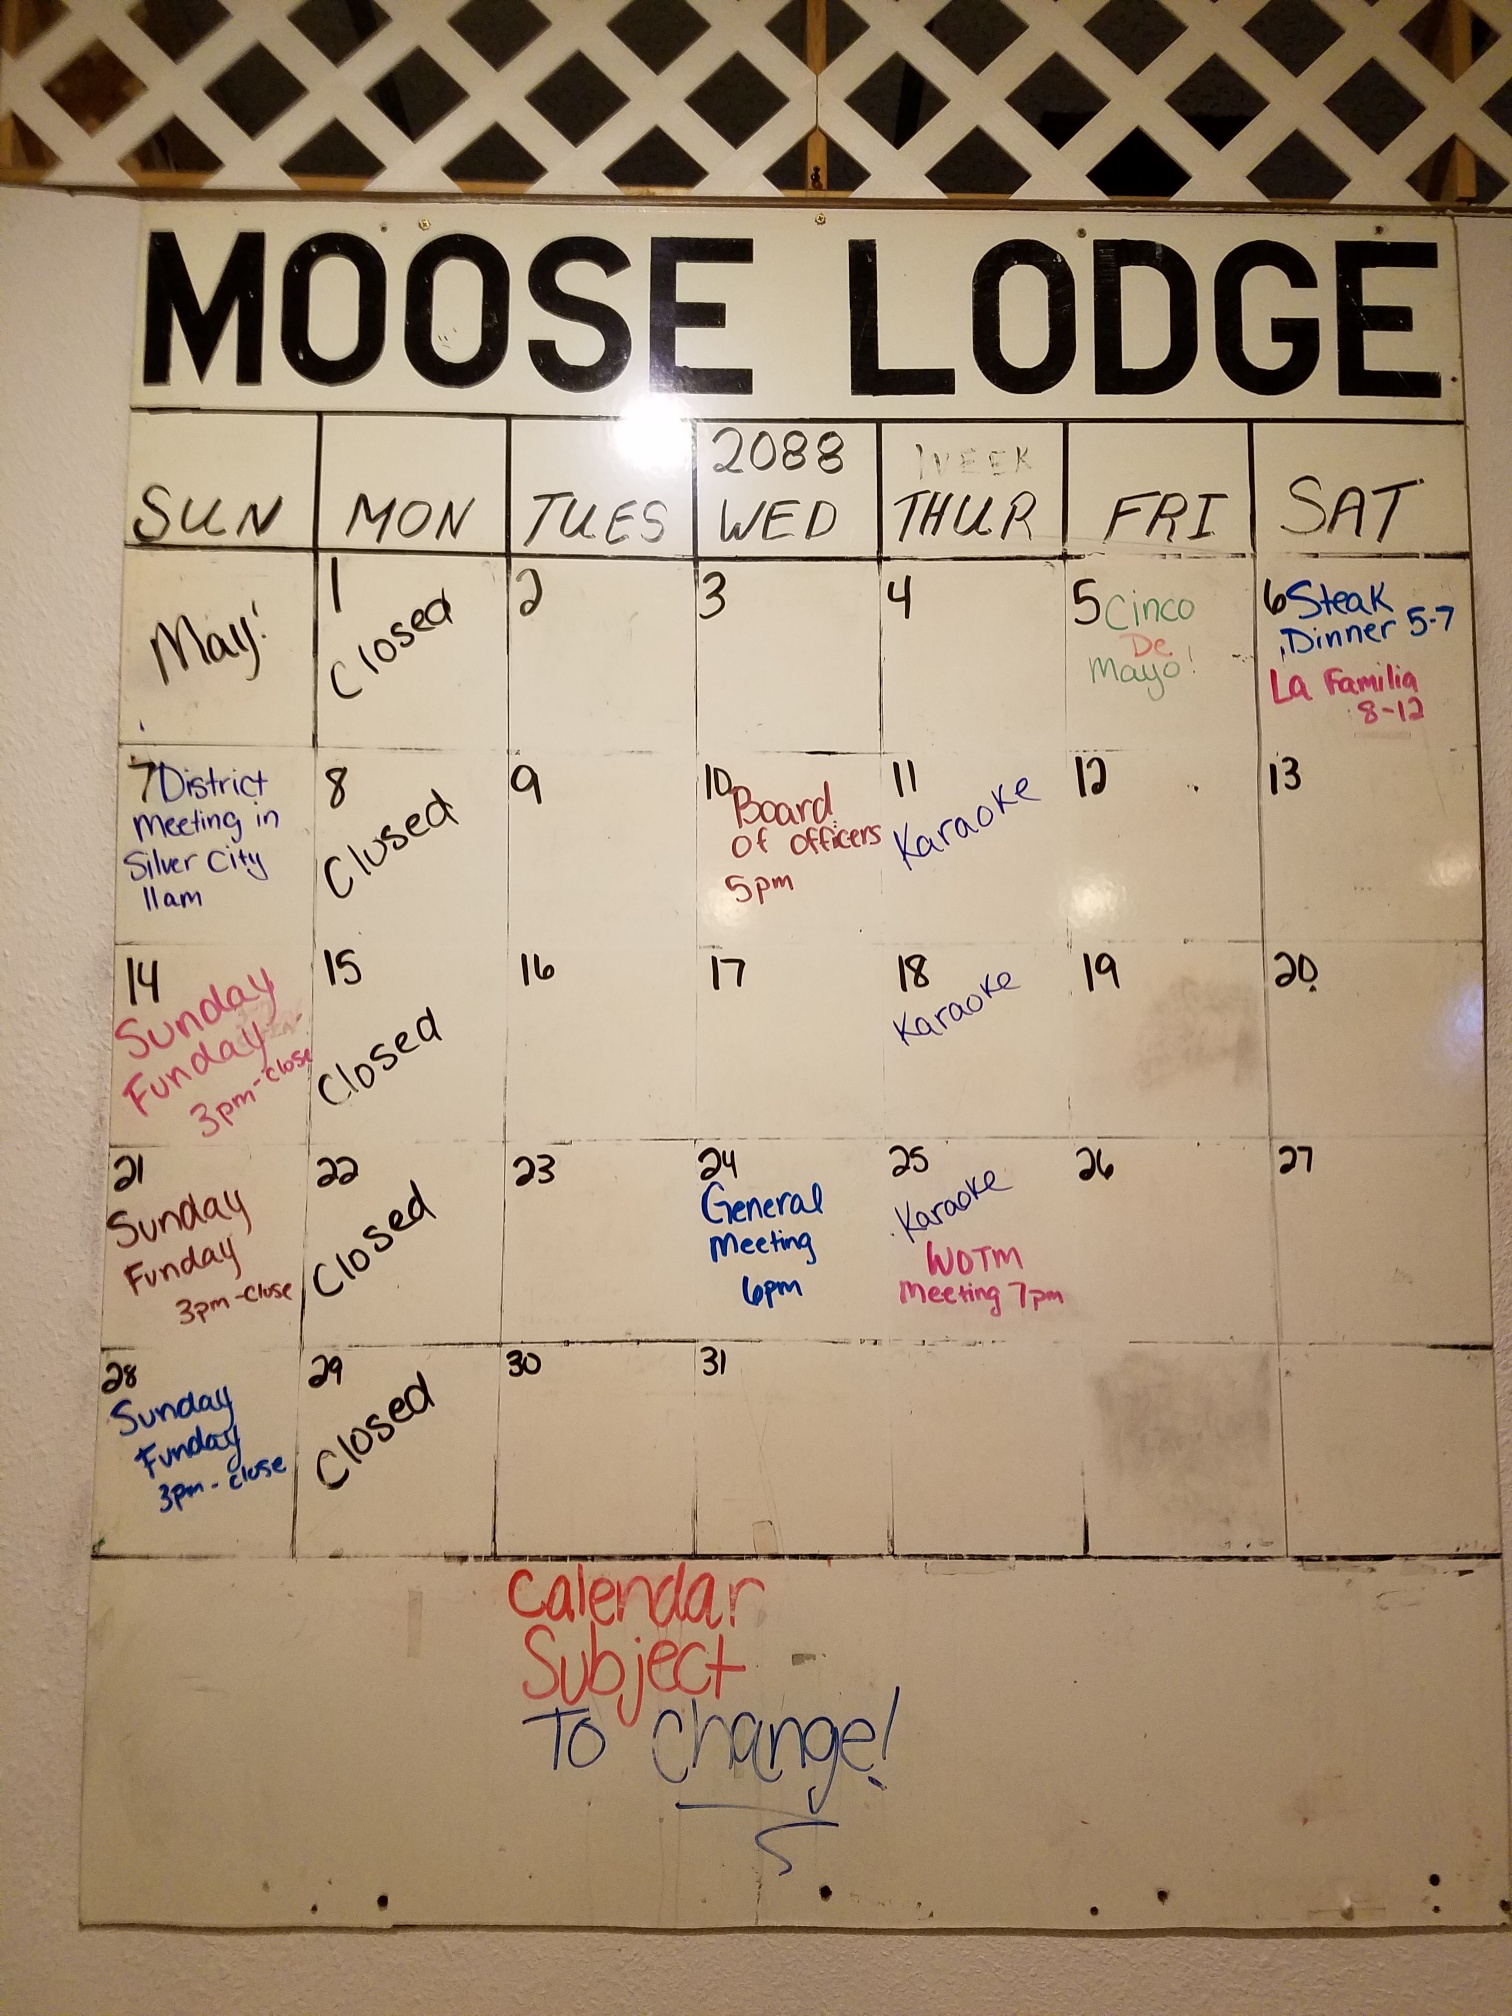 MOOSE LODGE
2088
WEEK
SUN MON TUES WED THUR FRI SAT
May!
1
Closed
2
3
4
5 Cinco
De
Mayo!
6 Steak
Dinner 5-7
La Familia
8-12
7 District
Meeting in
Silver City
11am
8
Closed
9
10
Board
of officers
5pm
11
Karaoke
12
13
14
Sunday
Funday
3pm-close
15
Closed
16
17
18
Karaoke
19
20
21
Sunday
Funday
3pm-close
22
Closed
23
24
General
Meeting
6pm
25
Karaoke
WOTM
Meeting 7pm
26
27
28
Sunday
Funday
3pm-close
29
Closed
30
31
Calendar
Subject
To change!